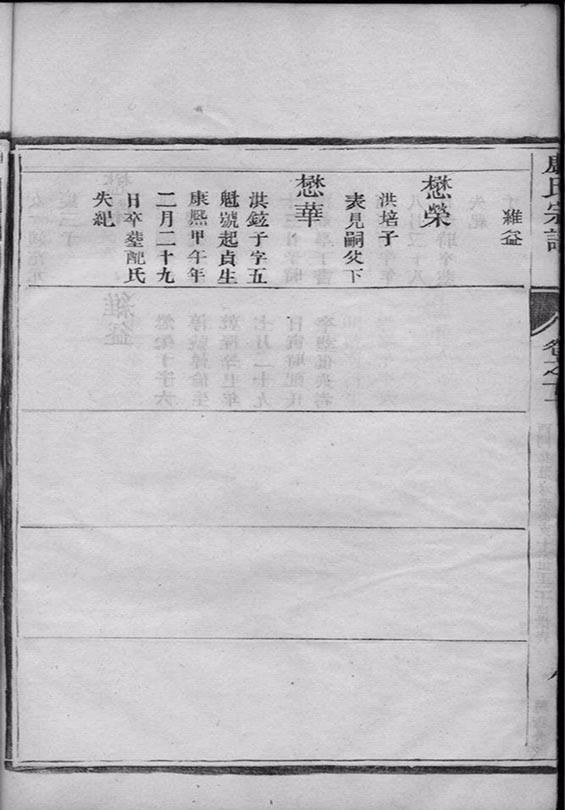 氏宗譜
卷之
維益
懋榮
洪培子
表見嗣父下
懋華
洪鉉子字五
魁號起貞生
康熙甲午年
二月二十九
日卒塟配氏
失紀